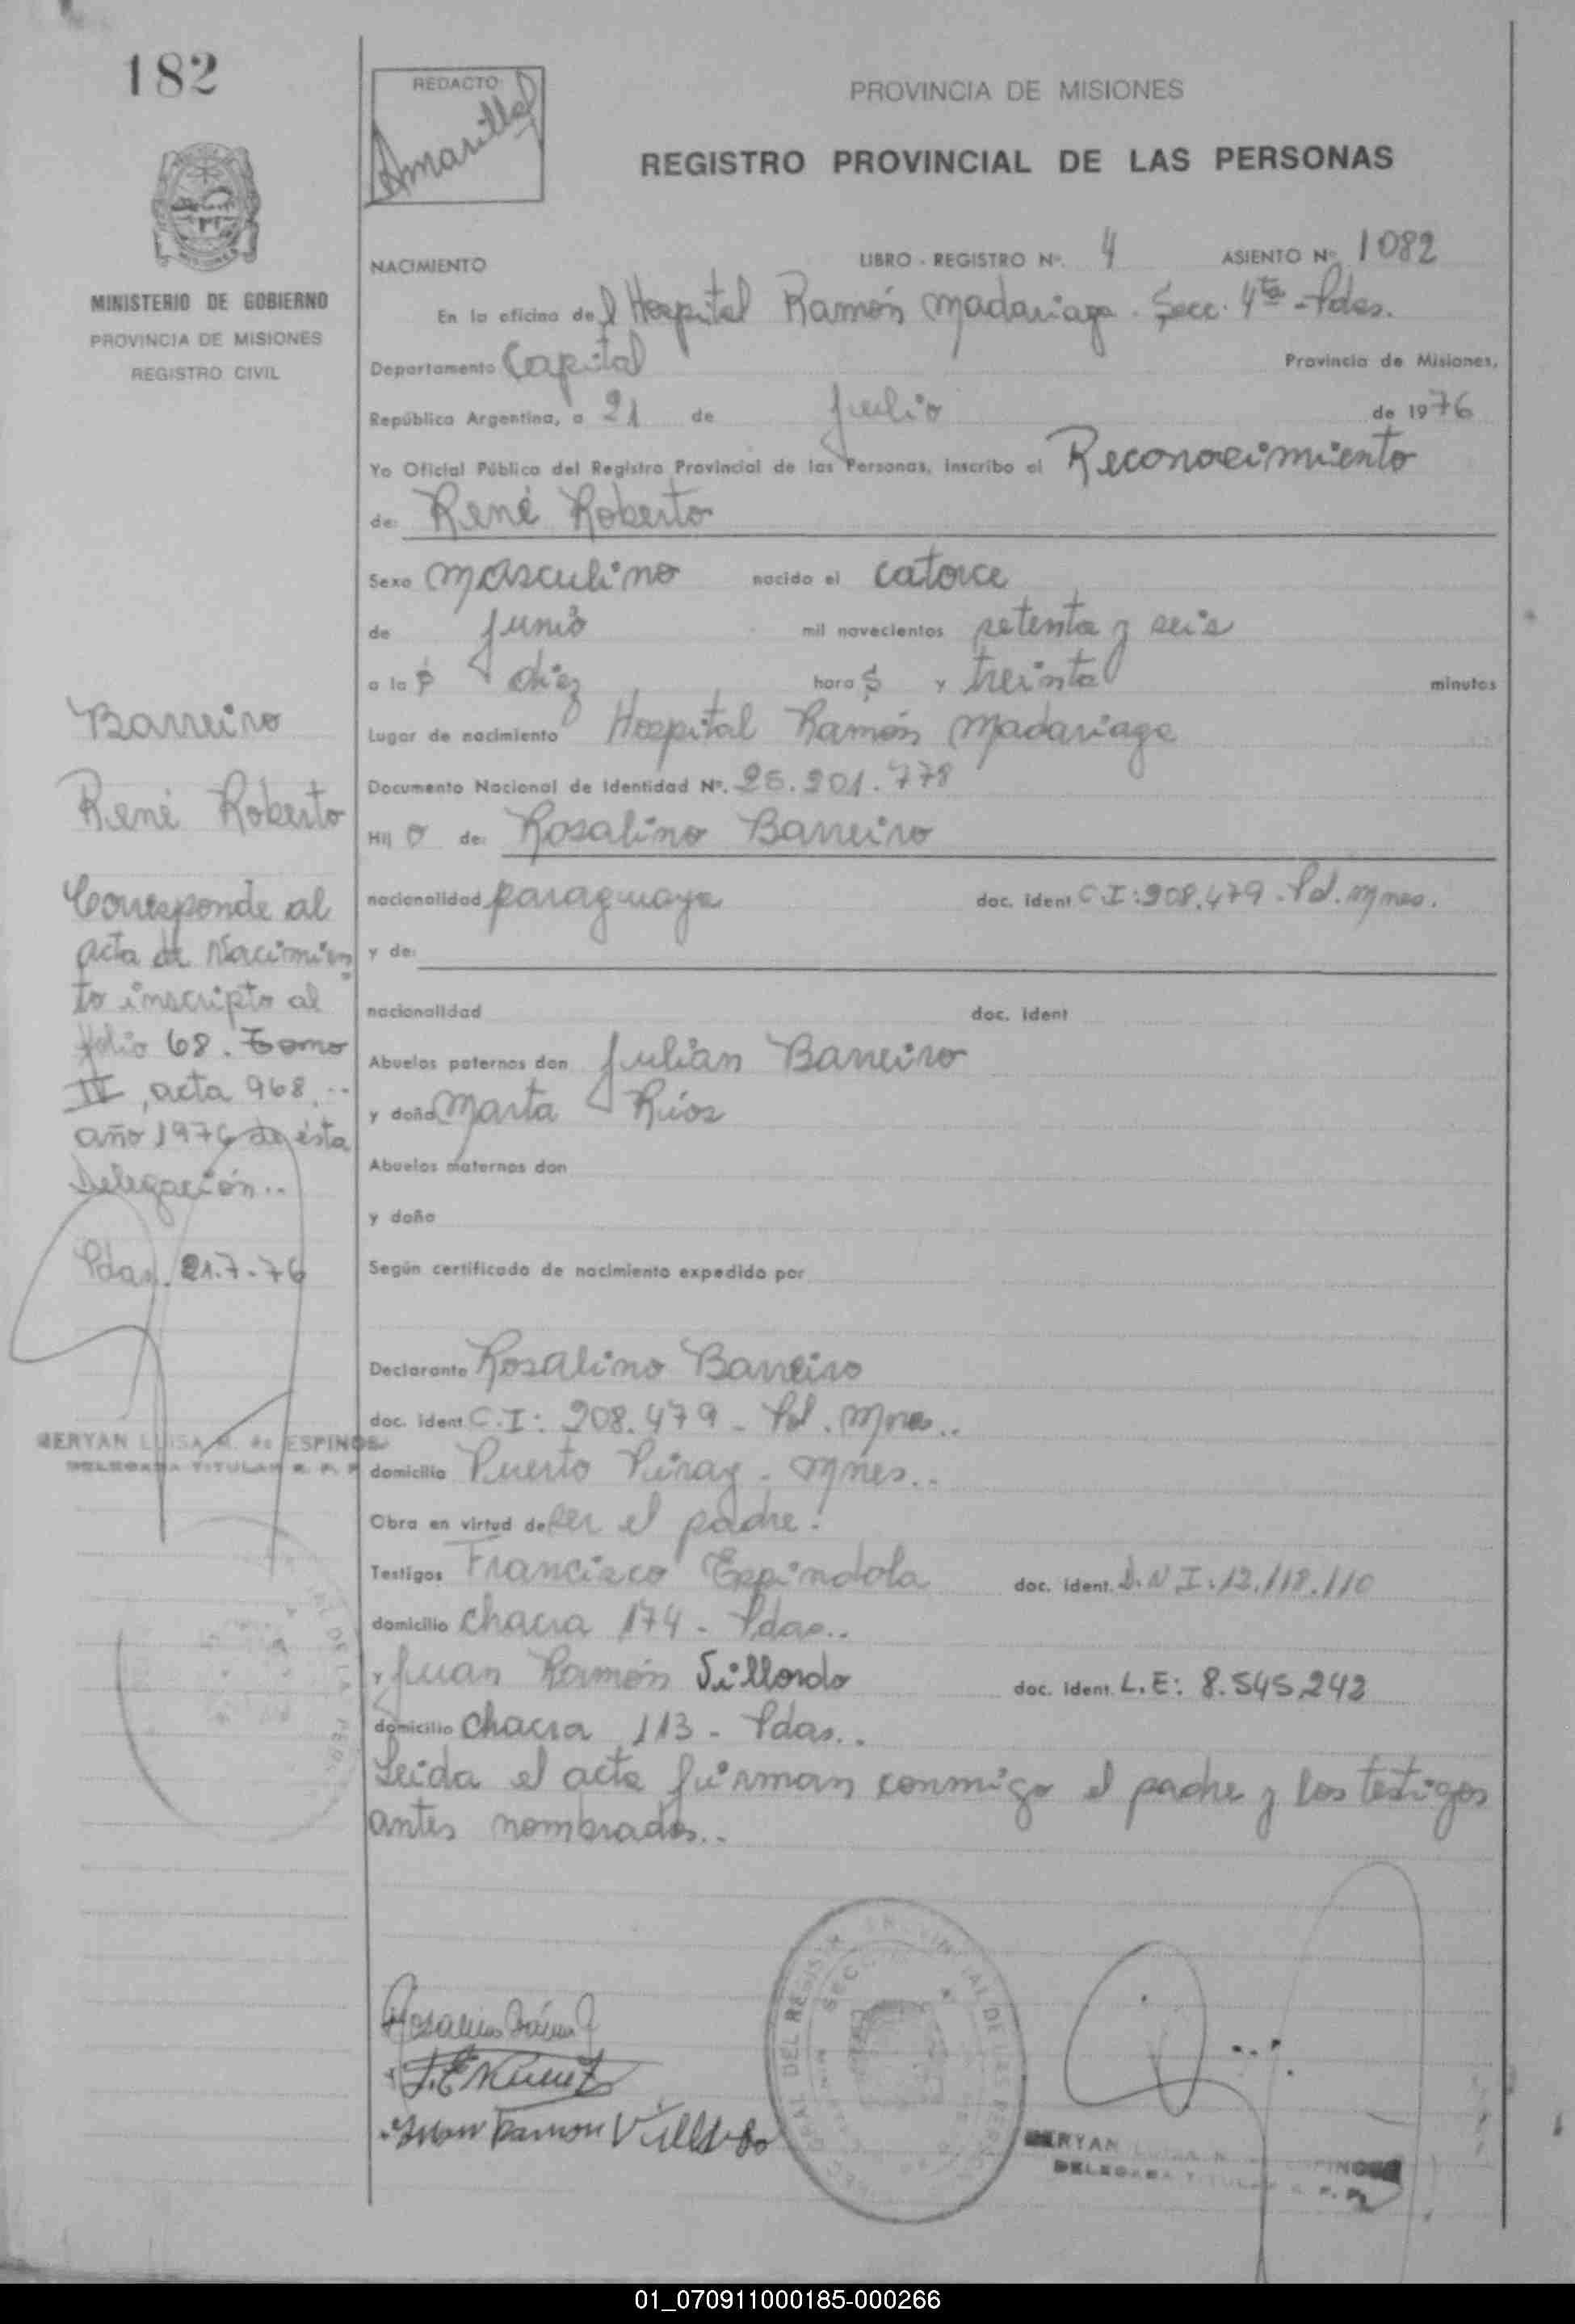 182
REDACTO
Amarilla
PROVINCIA DE MISIONES
REGISTRO PROVINCIAL DE LAS PERSONAS
MINISTERIO DE GOBIERNO
PROVINCIA DE MISIONES
REGISTRO CIVIL
NACIMIENTO LIBRO - REGISTRO Nº. 4 ASIENTO Nº 1082
En la oficina del Hospital Ramón Madariaga. Secc. 4ta - Pdas.
Departamento Capital Provincia de Misiones,
República Argentina, a 21 de Julio de 1976
Yo Oficial Público del Registro Provincial de las Personas, inscribo el Reconocimiento
de: René Roberto
Sexo masculino nacido el catorce
de Junio mil novecientos setenta y seis
a las diez horas y treinta minutos
Lugar de nacimiento Hospital Ramón Madariaga
Documento Nacional de Identidad Nº. 25.201.778
Hijo de: Rosalino Barreiro
nacionalidad paraguaya doc. ident C.I: 208.479 - Pol. Mnes.
y de:
nacionalidad doc. ident
Abuelos paternos don Julián Barreiro
y doña Marta Ríos
Abuelos maternos don
y doña
Según certificado de nacimiento expedido por
Declarante Rosalino Barreiro
doc. ident. C.I: 208.479 - Pol. Mnes..
domicilio Puerto Piray - Mnes..
Obra en virtud de ser el padre.
Testigos Francisco Espíndola doc. ident. D.N.I. 12.118.110
domicilio chacra 174 - Pdas..
y Juan Ramón Villordo doc. ident. L.E: 8.545.242
domicilio chacra 113 - Pdas..
Leida el acta firman conmigo el padre y los testigos
antes nombrados..
Barreiro
René Roberto
Corresponde al
acta de Nacimien
to inscripto al
folio 68. Tomo
IV, acta 968.
año 1976 de ésta
Delegación..
Pdas. 21.7.76
MERYAN LUISA N. de ESPINOSA
DELEGADA TITULAR R. P. P.
Juan Ramon Villordo
MERYAN LUISA N. de ESPINOSA
DELEGADA TITULAR R. P. P.
01_070911000185-000266